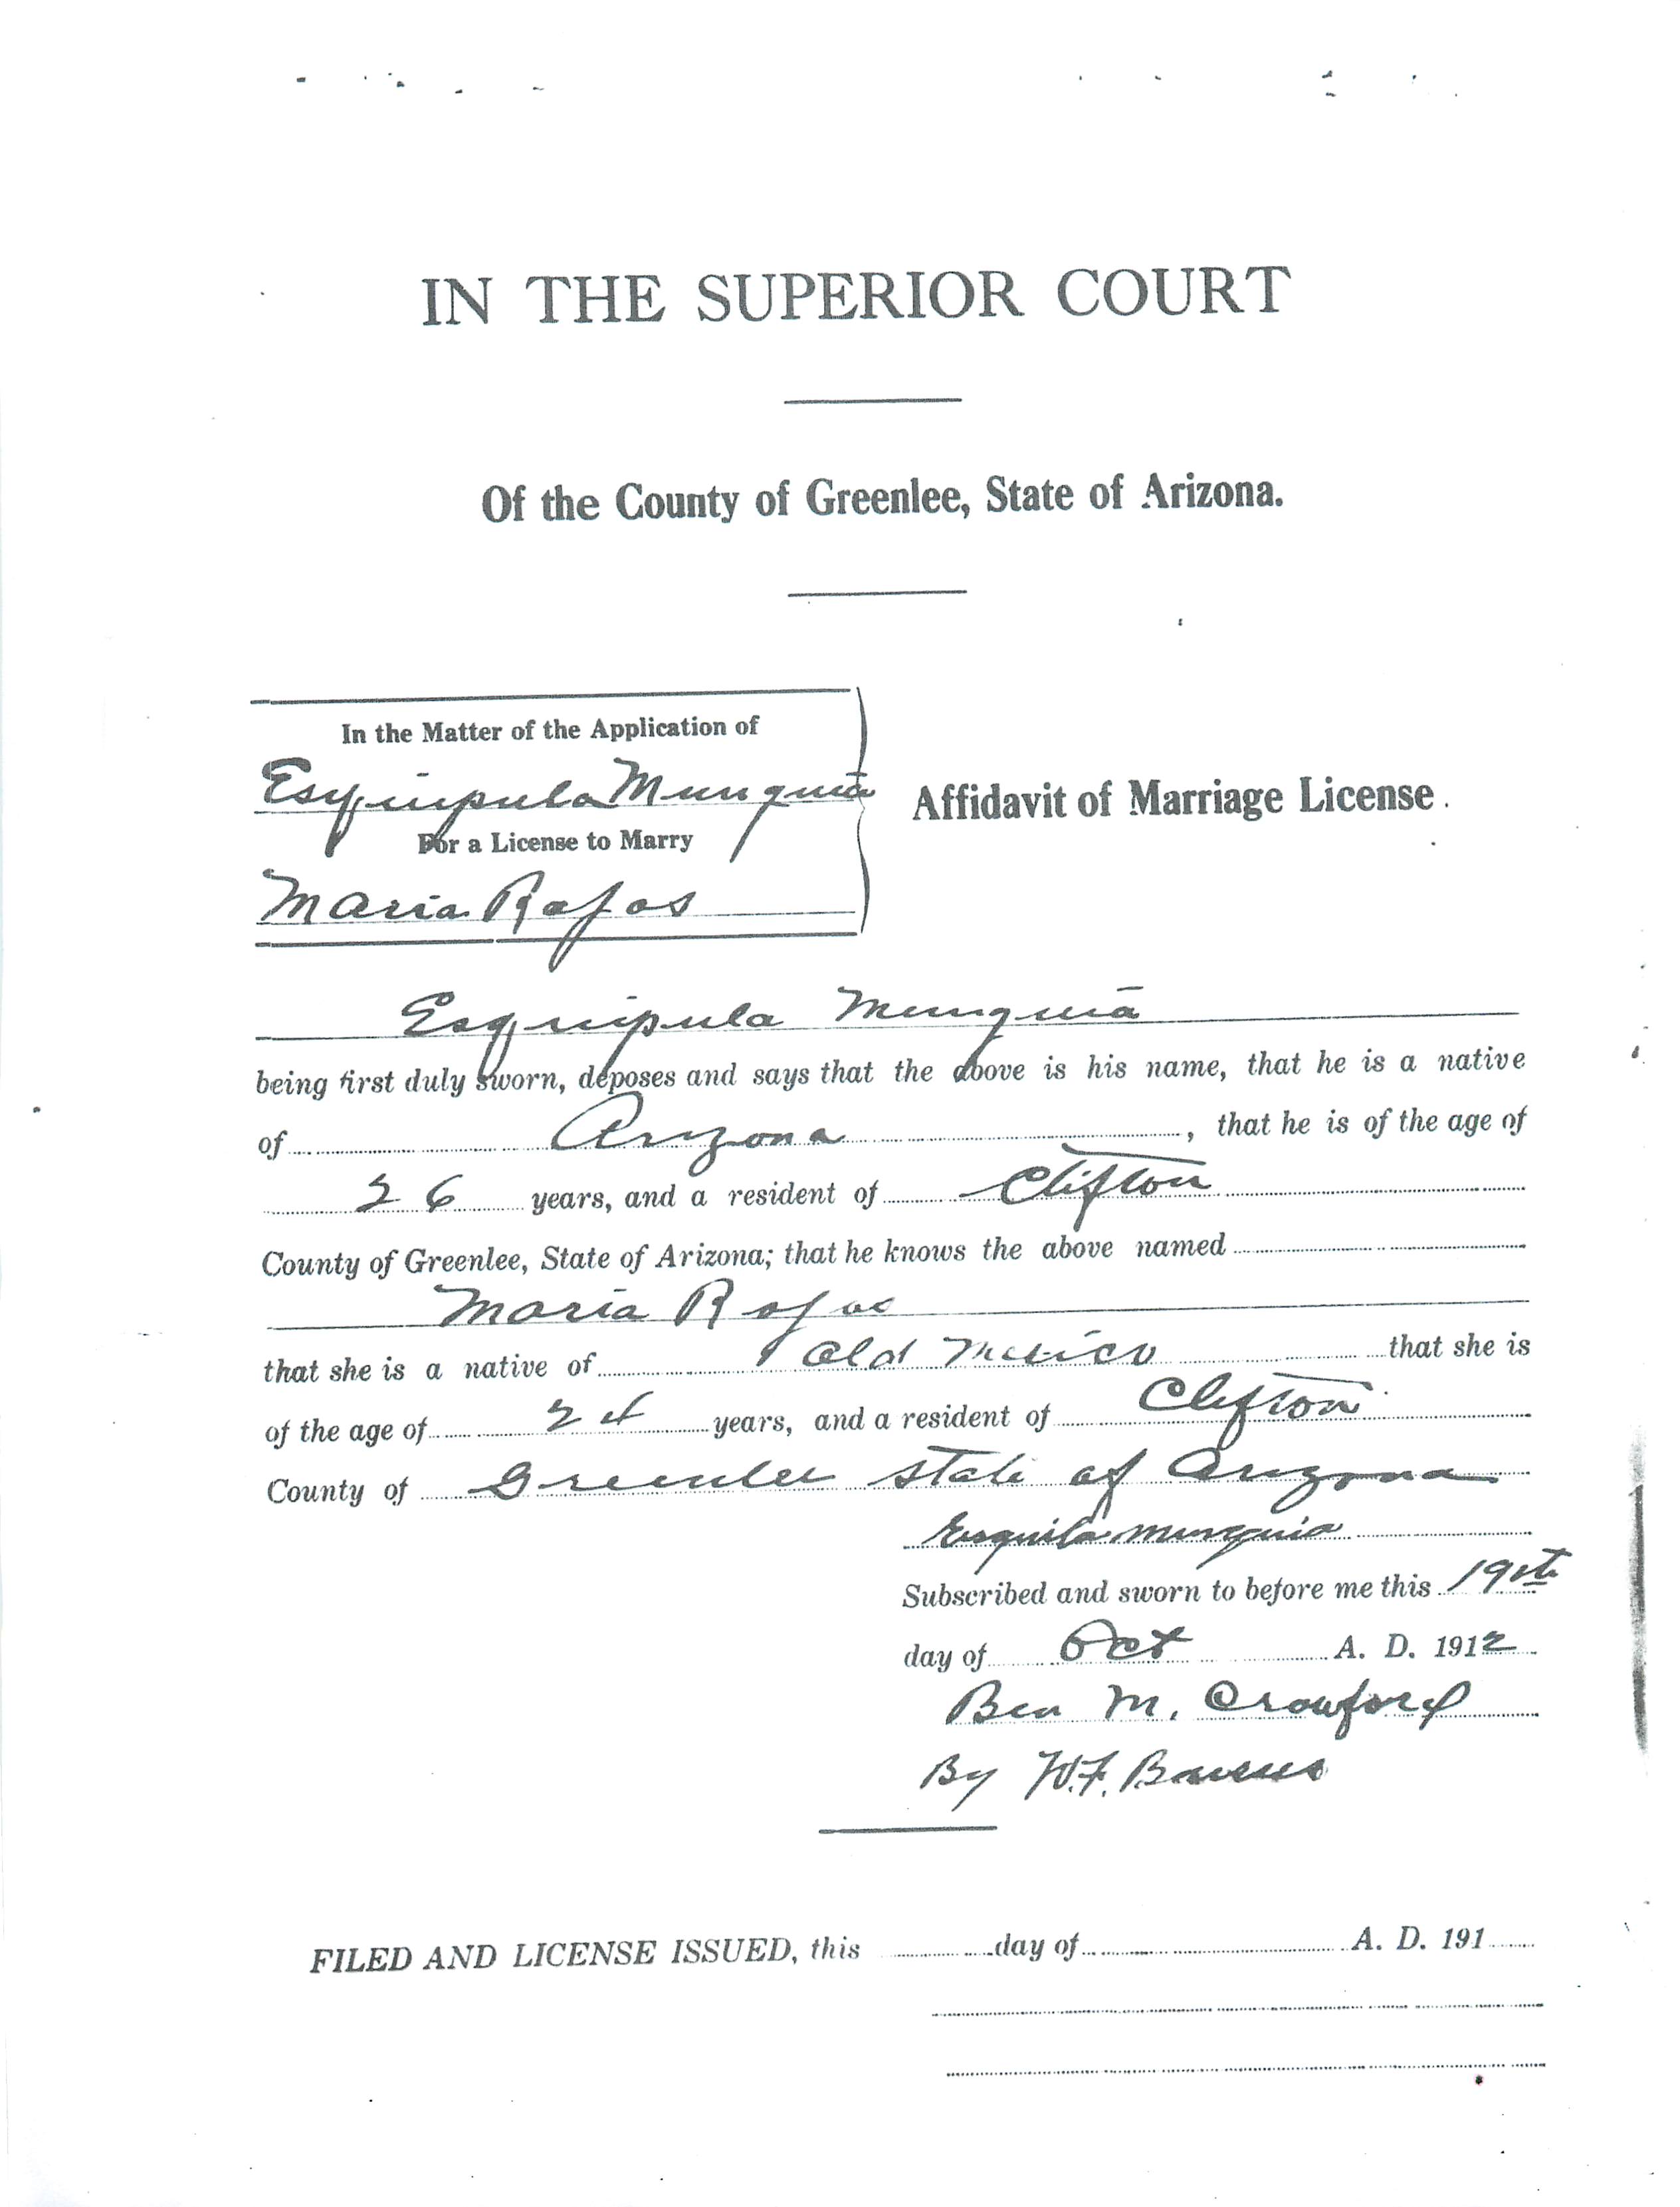 IN THE SUPERIOR COURT
Of the County of Greenlee, State of Arizona.
In the Matter of the Application of
Esquipula Munguia
For a License to Marry
Maria Rojas
Affidavit of Marriage License.
Esquipula Munguia
being first duly sworn, deposes and says that the above is his name, that he is a native
of Arizona, that he is of the age of
26 years, and a resident of Clifton
County of Greenlee, State of Arizona; that he knows the above named
Maria Rojas
that she is a native of Old Mexico that she is
of the age of 24 years, and a resident of Clifton
County of Greenlee State of Arizona
Esquila munguia
Subscribed and sworn to before me this 19th
day of Oct A. D. 1912
Ben M. Crawford
By W.F.
FILED AND LICENSE ISSUED, this day of A. D. 191